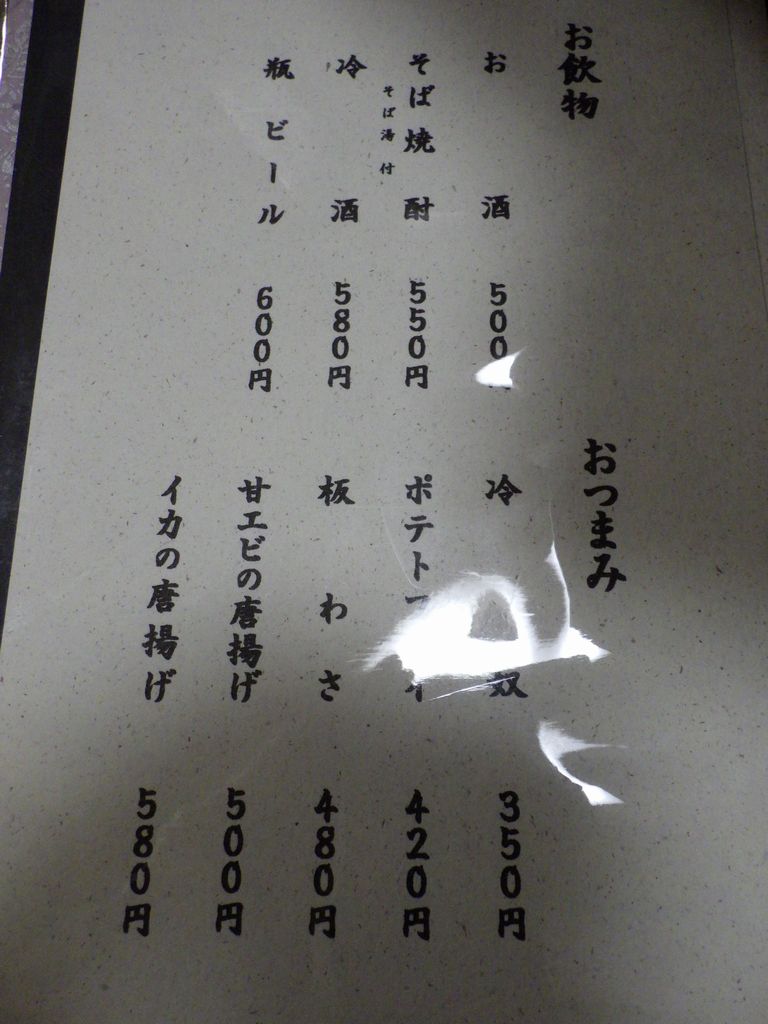 お飲物
お酒 500
そば焼酎 550円
そば湯付
冷酒 580円
瓶ビール 600円
おつまみ
冷奴 350円
ポテト 420円
板わさ 480円
甘エビの唐揚げ 500円
イカの唐揚げ 580円